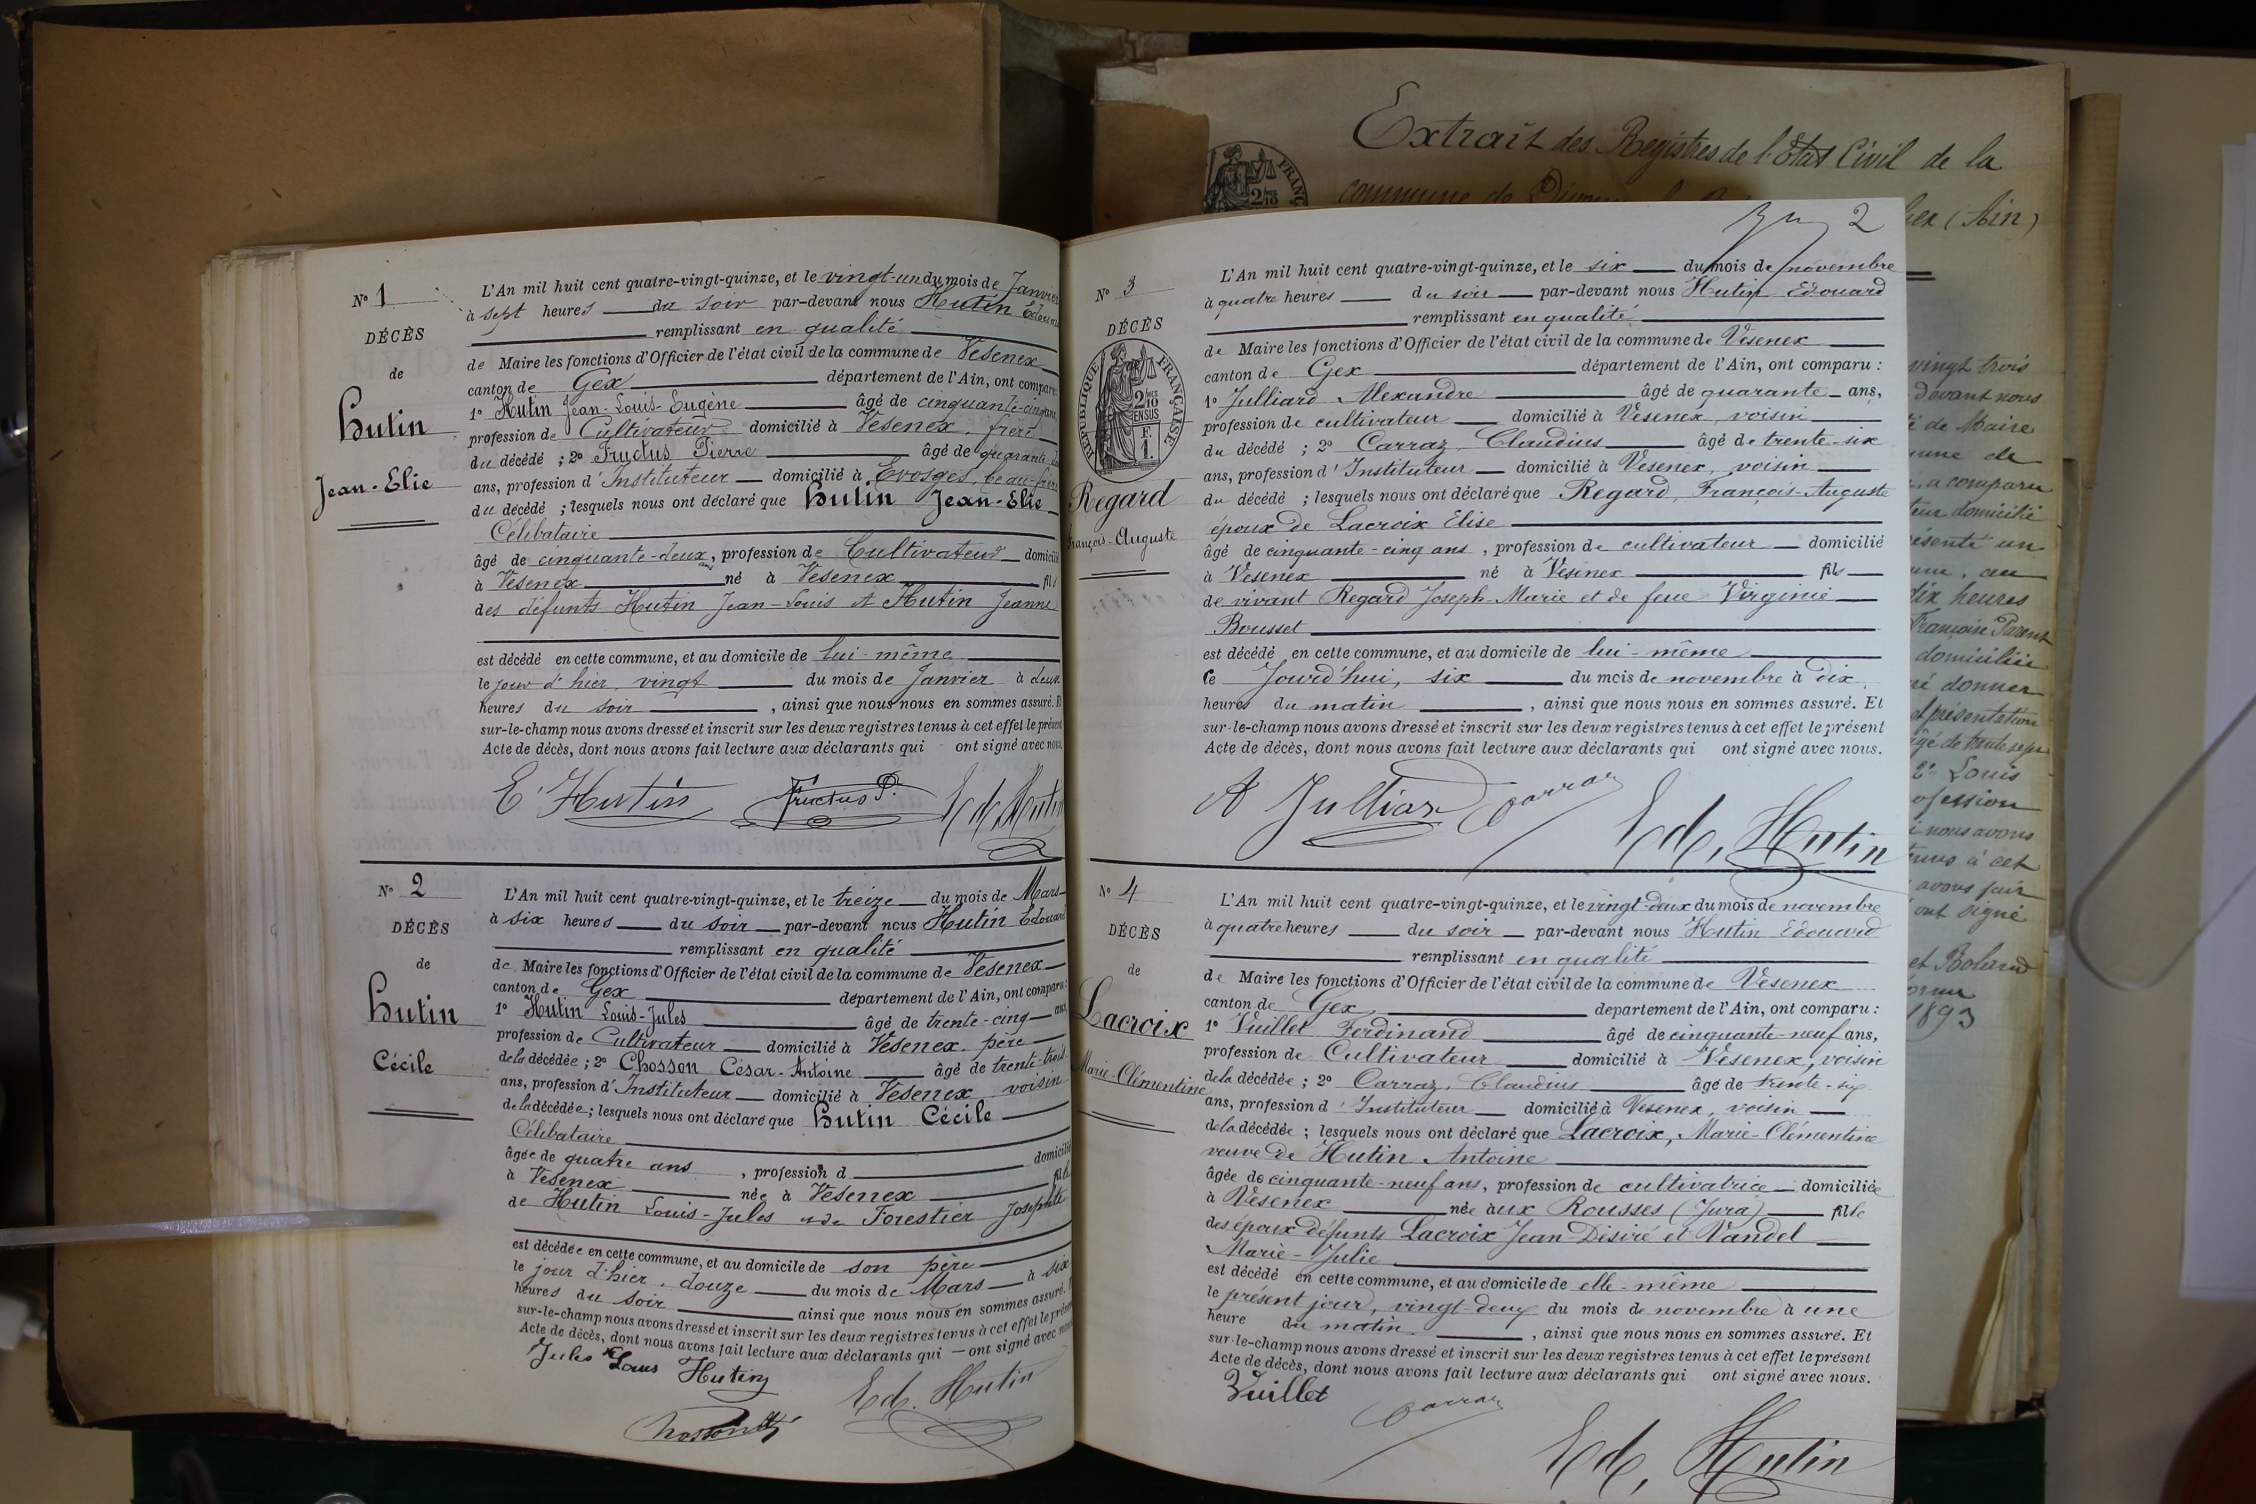 N° 1
DÉCÈS
de
Hutin
Jean-Elie
L'An mil huit cent quatre-vingt-quinze, et le vingt-un du mois de Janvier
à sept heures du soir par-devant nous Hutin Edouard
remplissant en qualité
de Maire les fonctions d'Officier de l'état civil de la commune de Vesenex
canton de Gex département de l'Ain, ont comparu:
1° Hutin Jean-Louis-Eugène âgé de cinquante-cinq ans,
profession de Cultivateur domicilié à Vesenex, frère
du décédé ; 2° Fructus Pierre âgé de quarante-
ans, profession d'Instituteur domicilié à Evosges, beau-frère
du décédé ; lesquels nous ont déclaré que Hutin Jean-Elie
Célibataire
âgé de cinquante-deux ans, profession de Cultivateur domicilié
à Vesenex né à Vesenex fils
des défunts Hutin Jean-Louis et Hutin Jeanne
est décédé en cette commune, et au domicile de lui-même
le jour d'hier, vingt du mois de Janvier à deux
heures du soir , ainsi que nous nous en sommes assuré. Et
sur-le-champ nous avons dressé et inscrit sur les deux registres tenus à cet effet le présent
Acte de décès, dont nous avons fait lecture aux déclarants qui ont signé avec nous.
E. Hutin Fructus P. Ed. Hutin
N° 2
DÉCÈS
de
Hutin
Cécile
L'An mil huit cent quatre-vingt-quinze, et le treize du mois de Mars
à six heures du soir par-devant nous Hutin Edouard
remplissant en qualité
de Maire les fonctions d'Officier de l'état civil de la commune de Vesenex
canton de Gex département de l'Ain, ont comparu:
1° Hutin Louis-Jules âgé de trente-cinq ans,
profession de Cultivateur domicilié à Vesenex, père
de la décédée ; 2° Chosson César-Antoine âgé de trente-trois
ans, profession d'Instituteur domicilié à Vesenex voisin
de la décédée ; lesquels nous ont déclaré que Hutin Cécile
Célibataire
âgée de quatre ans , profession d domicilié
à Vesenex née à Vesenex fille
de Hutin Louis-Jules et de Forestier Josephte
est décédée en cette commune, et au domicile de son père
le jour d'hier, douze du mois de Mars à six
heures du soir ainsi que nous nous en sommes assuré.
sur-le-champ nous avons dressé et inscrit sur les deux registres tenus à cet effet le présent
Acte de décès, dont nous avons fait lecture aux déclarants qui ont signé avec nous
Jules Louis Hutin Ed. Hutin
Chosson
2
N° 3
DÉCÈS
RÉPUBLIQUE FRANÇAISE
2/10
EN SUS
F.
1.
Regard
François-Auguste
L'An mil huit cent quatre-vingt-quinze, et le six du mois de novembre
à quatre heures du soir par-devant nous Hutin Edouard
remplissant en qualité
de Maire les fonctions d'Officier de l'état civil de la commune de Vesenex
canton de Gex département de l'Ain, ont comparu :
1° Julliard Alexandre âgé de quarante ans,
profession de cultivateur domicilié à Vesenex, voisin
du décédé ; 2° Carraz, Claudius âgé de trente-six
ans, profession d'Instituteur domicilié à Vesenex, voisin
du décédé ; lesquels nous ont déclaré que Regard, François-Auguste
époux de Lacroix Elise
âgé de cinquante-cinq ans , profession de cultivateur domicilié
à Vesenex né à Vesenex fils
de vivant Regard Joseph-Marie et de feue Virginie
Bousset
est décédé en cette commune, et au domicile de lui-même
le Jourd'hui, six du mois de novembre à dix
heures du matin , ainsi que nous nous en sommes assuré. Et
sur-le-champ nous avons dressé et inscrit sur les deux registres tenus à cet effet le présent
Acte de décès, dont nous avons fait lecture aux déclarants qui ont signé avec nous.
A Julliard Carraz Ed. Hutin
N° 4
DÉCÈS
de
Lacroix
Marie-Clémentine
L'An mil huit cent quatre-vingt-quinze, et le vingt-deux du mois de novembre
à quatre heures du soir par-devant nous Hutin Edouard
remplissant en qualité
de Maire les fonctions d'Officier de l'état civil de la commune de Vesenex
canton de Gex département de l'Ain, ont comparu :
1° Vuillet Ferdinand âgé de cinquante-neuf ans,
profession de Cultivateur domicilié à Vesenex, voisin
de la décédée ; 2° Carraz, Claudius âgé de trente-six
ans, profession d'Instituteur domicilié à Vesenex, voisin
de la décédée ; lesquels nous ont déclaré que Lacroix, Marie-Clémentine
veuve de Hutin Antoine
âgée de cinquante-neuf ans, profession de cultivatrice domiciliée
à Vesenex née aux Rousses (Jura) fille
des époux défunts Lacroix Jean Désiré et Vandel
Marie-Julie
est décédé en cette commune, et au domicile de elle-même
le présent jour, vingt-deux du mois de novembre à une
heure du matin. , ainsi que nous nous en sommes assuré. Et
sur-le-champ nous avons dressé et inscrit sur les deux registres tenus à cet effet le présent
Acte de décès, dont nous avons fait lecture aux déclarants qui ont signé avec nous.
Vuillet Carraz Ed. Hutin
Extrait des Registres de l'Etat Civil de la
commune de Gex (Ain)
vingt trois
devant nous
de Maire
de
a comparu
domicilié
un
au
dix heures
Françoise Parent
domiciliée
donner
présentation
âgé de trente sept
2° Louis
profession
nous avons
à cet
avons fait
ont signé
et Roland
1893